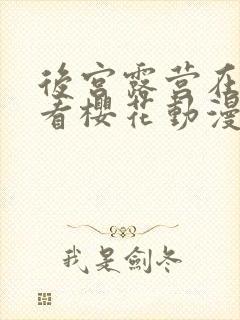 後宮露営在
看櫻花動漫
我是劍冬